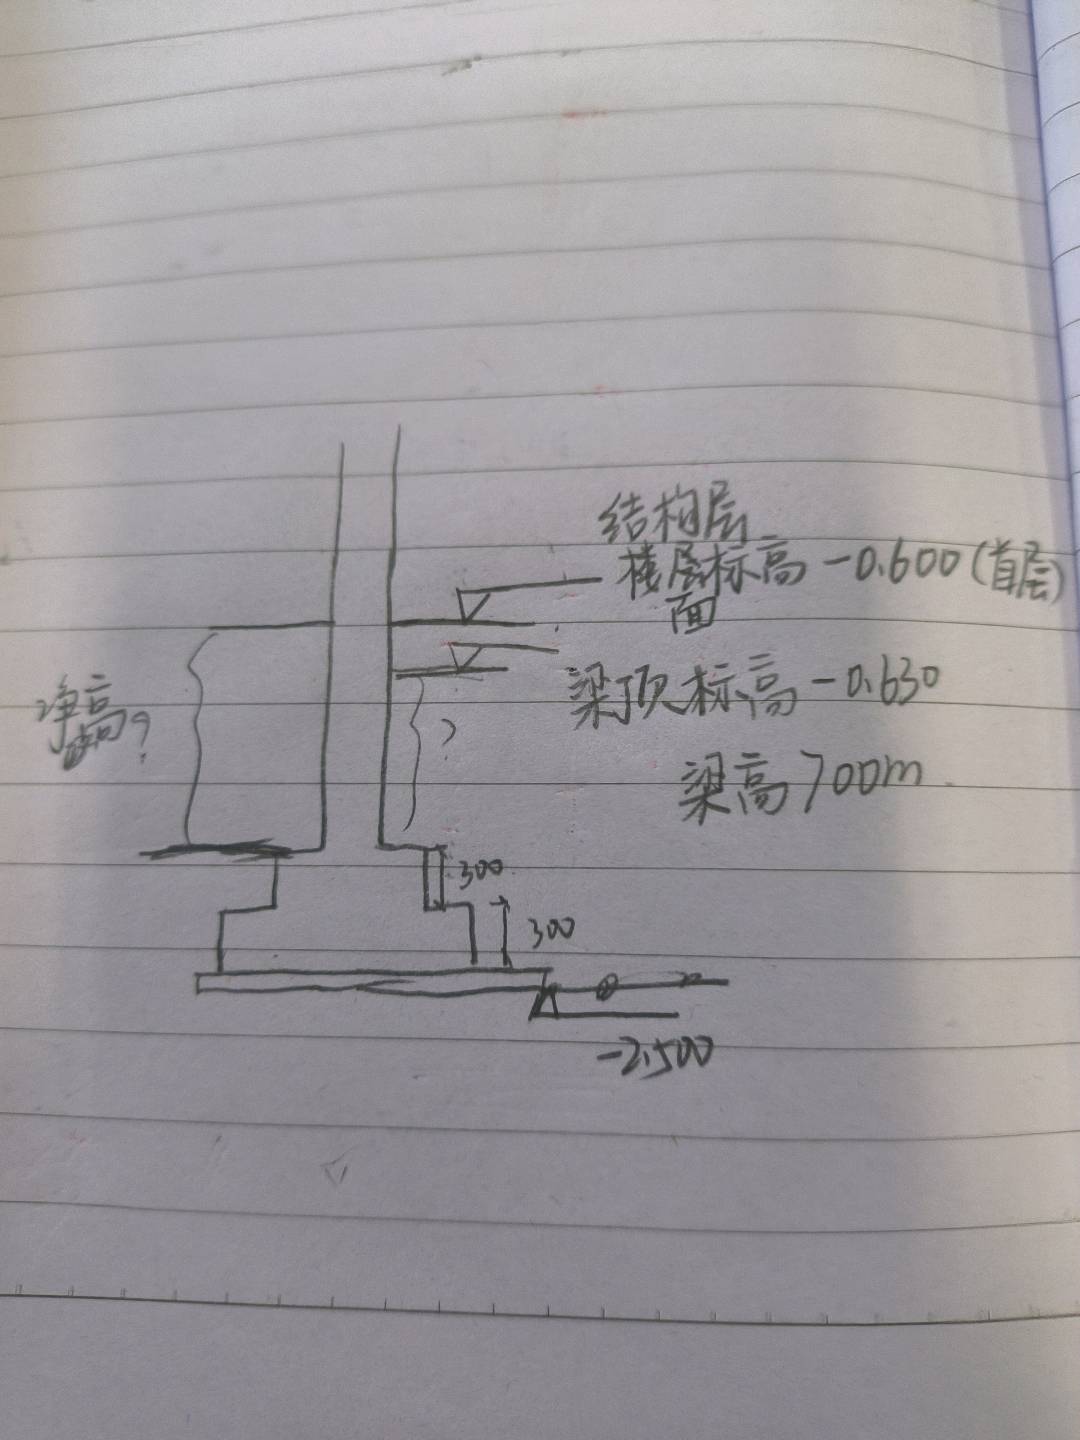 结构层
楼层标高 -0.600(首层)
面
梁顶标高 -0.630
净高?
?
梁高700m
300
300
-2.500